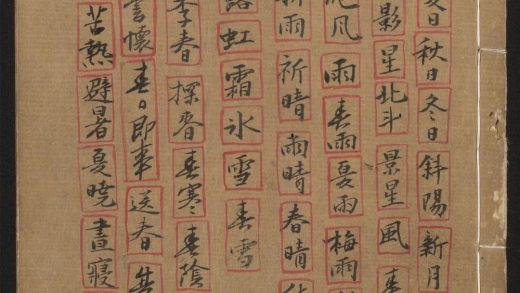 夏日 秋日 冬日 斜陽 新月
影 星 北斗 景星 風 春
風 雨 春雨 夏雨 梅雨
雨 祈晴 雨晴 春晴
虹 霜 氷 雪 春雪
季春 探春 春寒 春陰
書懐 春日即事 送春
苦熱 避暑 夏暁 晝寝